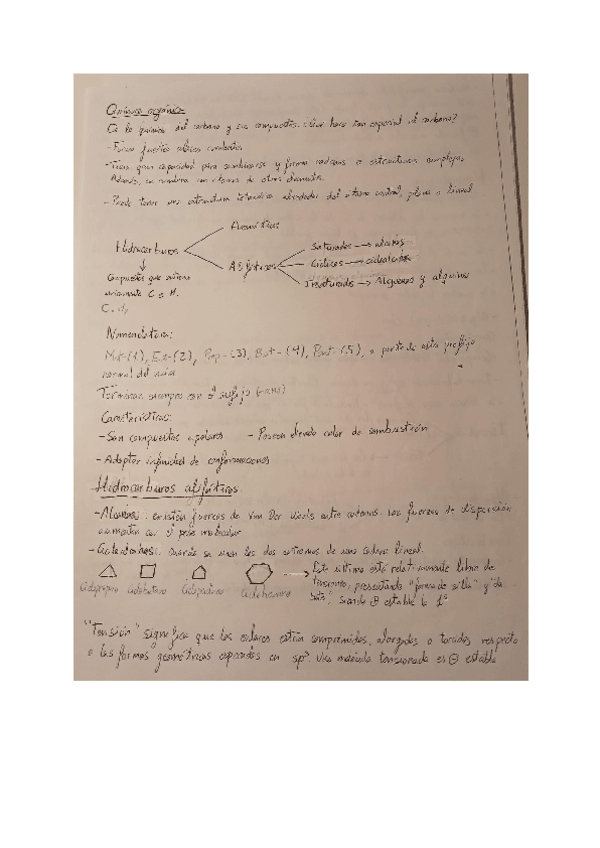 Química orgánica
Es la química del carbono y sus compuestos. ¿Qué hace tan especial al carbono?
- Forma fuertes enlaces covalentes
- Tiene gran capacidad para combinarse y formar cadenas o estructuras complejas
Además, se combina con átomos de otros elementos.
- Puede tener una estructura tetraédrica alrededor del átomo central, plana o lineal
Aromáticos
Hidrocarburos
Alifáticos
Saturados → alcanos
Cíclicos → cicloalcanos
Insaturados → Alquenos y alquinos
Compuestos que
únicamente C e H.
Nomenclatura:
Met-(1), Et-(2), Prop-(3), But-(4), Pent-(5), a partir de este prefijo
normal del
Terminan siempre con el sufijo (-ano)
Características:
- Son compuestos apolares - Poseen elevado calor de combustión
- Adoptan infinidad de conformaciones
Hidrocarburos alifáticos
- Alcanos: existen fuerzas de Van Der Waals entre cadenas. Las fuerzas de dispersión
aumentan con el peso molecular
- Cicloalcanos: cuando se unen los dos extremos de una cadena lineal.
Ciclopropano Ciclobutano Ciclopentano Ciclohexano
→ Este último está relativamente libre de
tensiones, presentando "forma de silla" y "de
bote", siendo ⊕ estable la 1ª
"Tensión" significa que los enlaces están comprimidos, alargados o torcidos respecto
a las formas geométricas esperadas en sp³. Una molécula tensionada es ⊖ estable